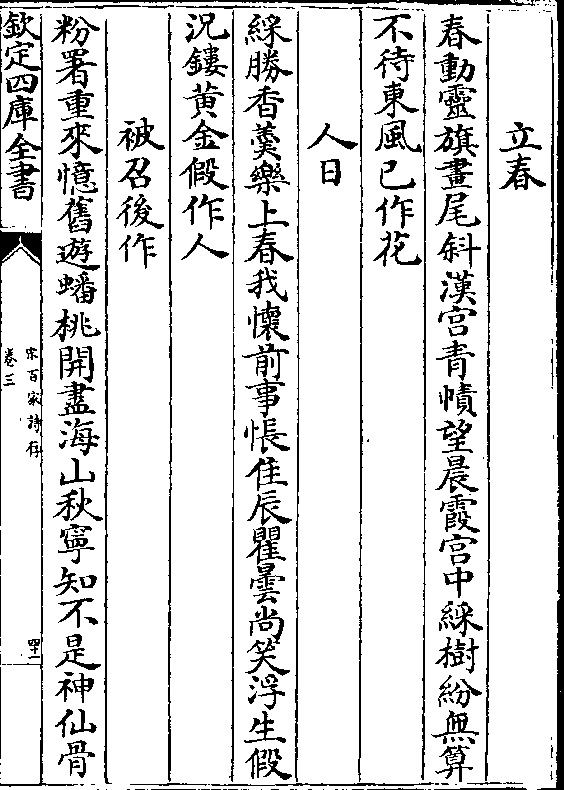 立春
春動靈旗畫尾斜漢宫青幘望晨霞宫中綵樹紛無算
不待東風已作花
人日
綵勝香羹樂上春我懷前事悵佳辰瞿曇尚笑浮生假
況鏤黄金假作人
被召後作
粉署重來憶舊遊蟠桃開盡海山秋寧知不是神仙骨
欽定四庫全書
宋百家詩存
卷三
四十二